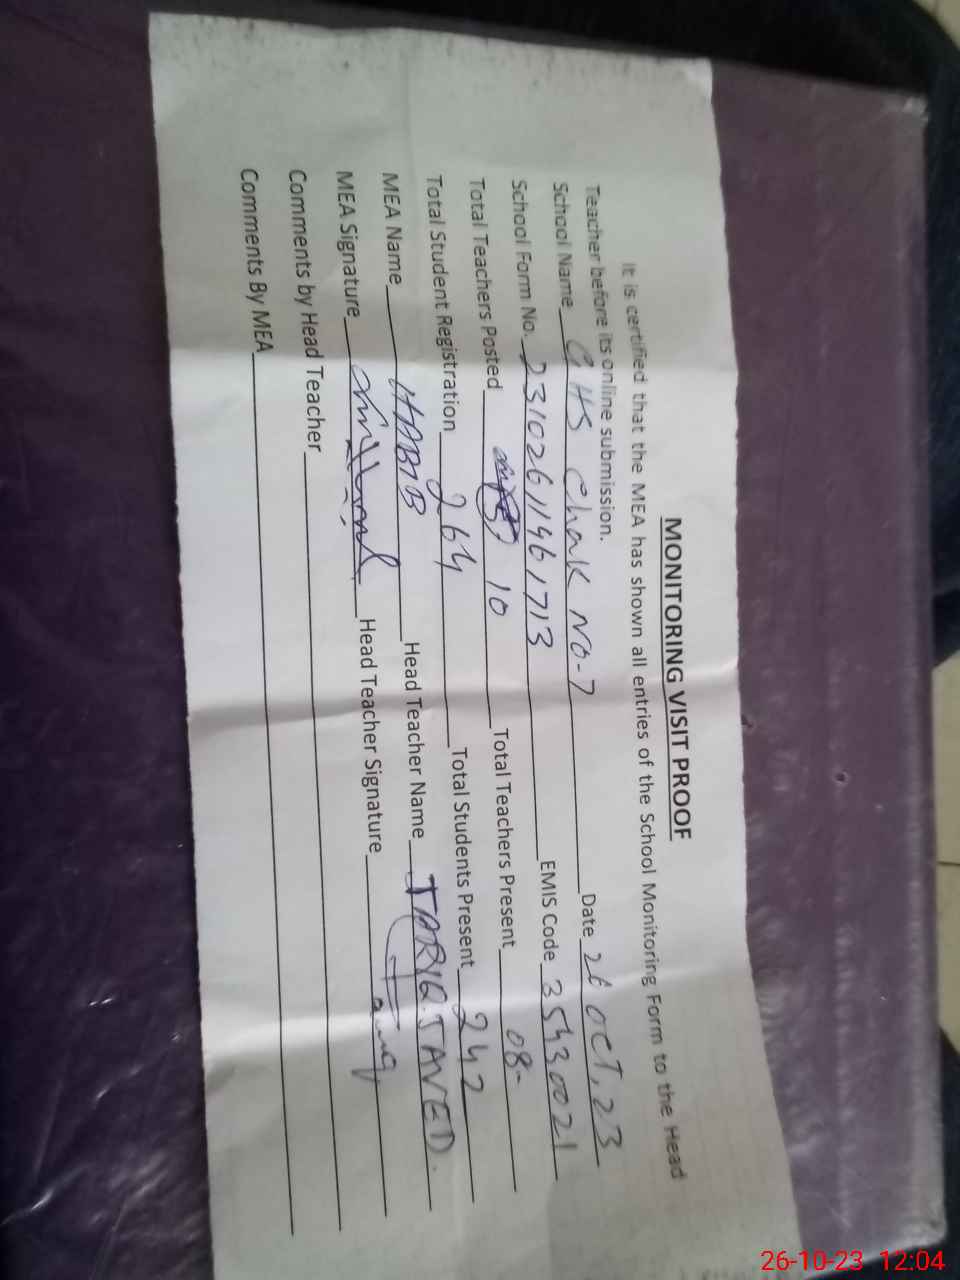 MONITORING VISIT PROOF
It is certified that the MEA has shown all entries of the School Monitoring Form to the Head
Teacher before its online submission.
School Name GHS Chak NO-7 Date 26 OCT, 23
School Form No. 23102611961713 EMIS Code 35430021
Total Teachers Posted 10 Total Teachers Present 08-
Total Student Registration 264 Total Students Present 242
MEA Name HABIB Head Teacher Name TARIQ JAVED.
MEA Signature Head Teacher Signature Tariq
Comments by Head Teacher
Comments By MEA
26-10-23 12:04